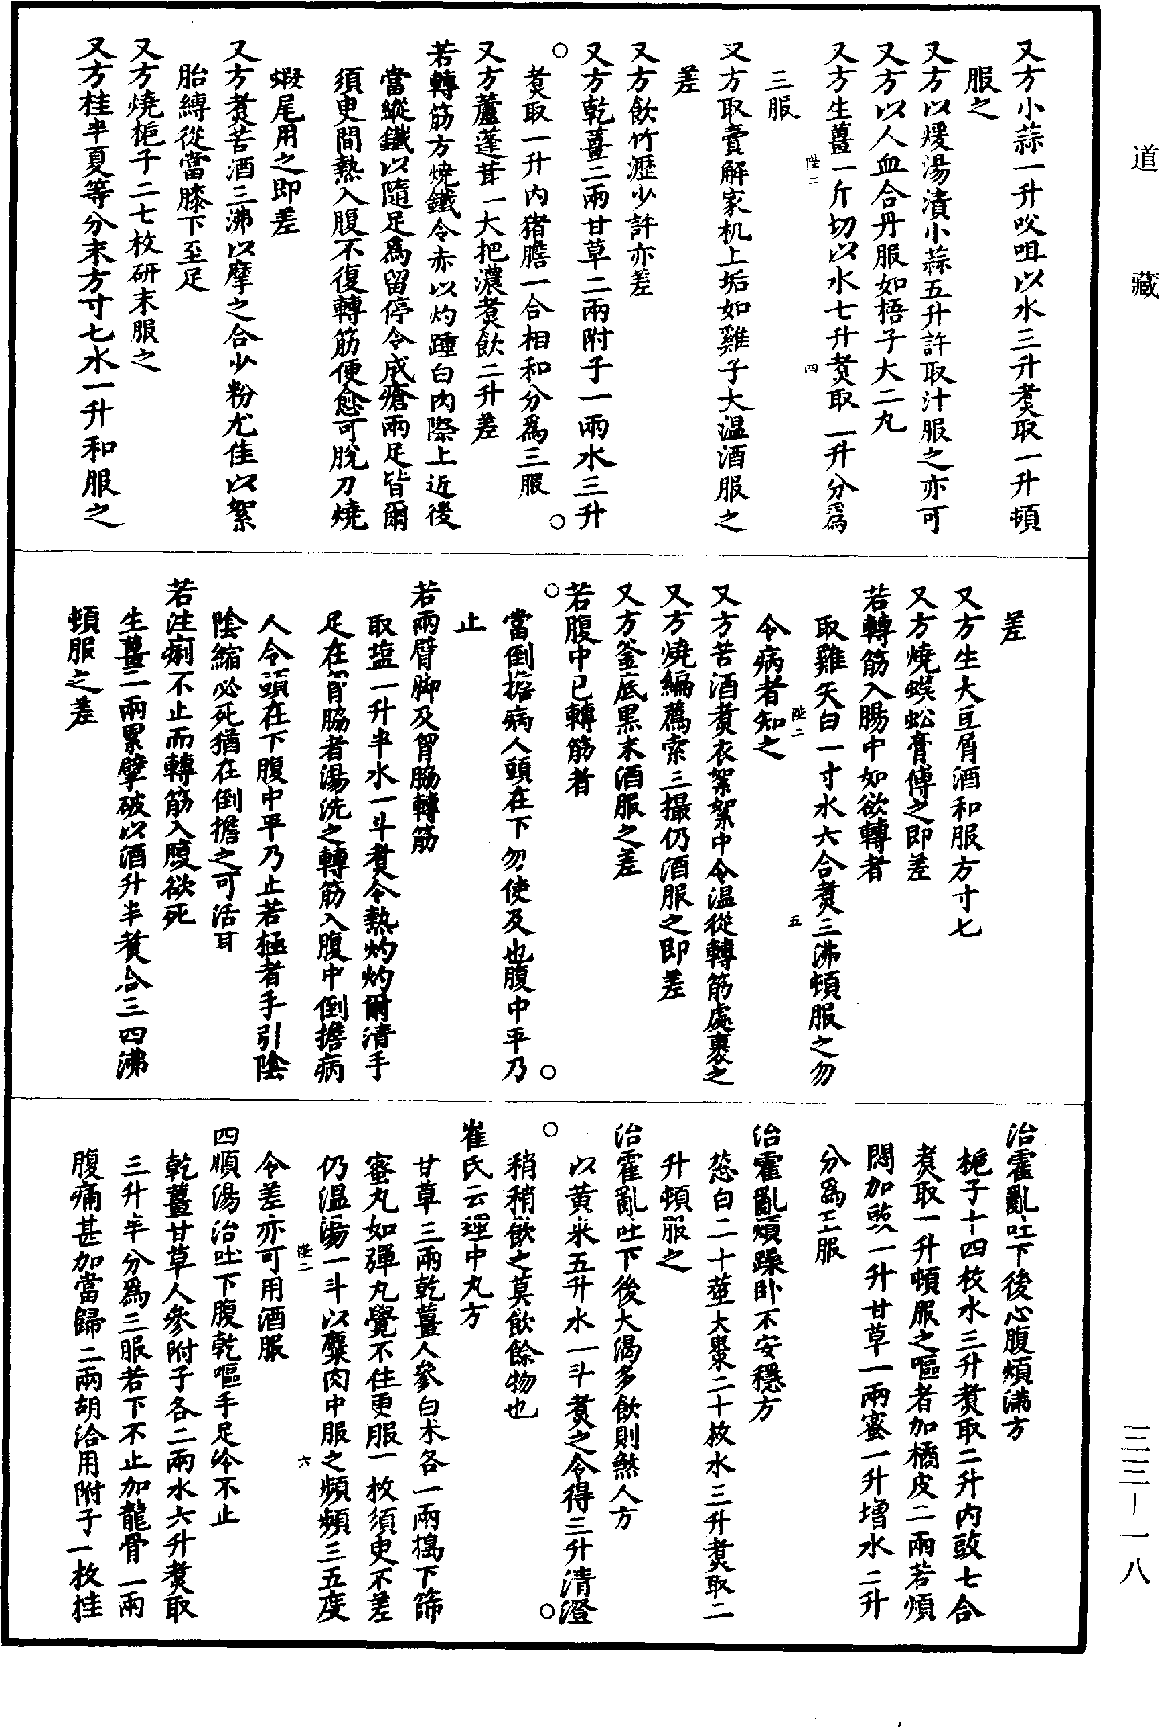 道藏
又方小蒜一升㕮咀以水三升煮取一升頓
服之
又方以煖湯漬小蒜五升許取汁服之亦可
又方以人血合丹服如梧子大二丸
又方生薑一斤切以水七升煮取一升分爲
陛二
四
三服
又方取賣解家机上垢如雞子大温酒服之
差
又方飲竹瀝少許亦差
又方乾薑二兩甘草二兩附子一兩水三升
煮取一升内猪膽一合相和分爲三服
又方蘆蓬茸一大把濃煮飲二升差
若轉筋方燒鐵令赤以灼踵白肉際上近後
當縱鐵以隨足爲留停令成瘡兩足皆爾
須臾間熱入腹不復轉筋便愈可脫刀燒
蝦尾用之即差
又方煮苦酒三沸以摩之合少粉尤佳以絮
胎縛從當膝下至足
又方燒梔子二七枚研末服之
又方桂半夏等分末方寸七水一升和服之
差
又方生大豆屑酒和服方寸七
又方燒蜈蚣膏傅之即差
若轉筋入腸中如欲轉者
取雞矢白一寸水六合煮三沸頓服之勿
陛二
五
令病者知之
又方苦酒煮衣絮絮中令温從轉筋處裹之
又方燒編薦索三撮仍酒服之即差
又方釜底黑末酒服之差
若腹中已轉筋者
當倒擔病人頭在下勿使及也腹中平乃
止
若兩臂脚及胷脇轉筋
取盐一升半水一斗煮令熱灼灼爾漬手
足在胷脇者湯洗之轉筋入腹中倒擔病
人令頭在下腹中平乃止若極者手引陰
陰縮必死猶在倒擔之可活耳
若注痢不止而轉筋入腹欲死
生薑二兩累擘破以酒升半煮合三四沸
頓服之差
治霍亂吐下後心腹煩滿方
梔子十四枚水三升煮取二升内豉七合
煮取一升頓服之嘔者加橘皮二兩若煩
悶加豉一升甘草一兩蜜一升增水二升
分爲三服
治霍亂煩躁卧不安穩方
葱白二十莖大棗二十枚水三升煮取二
升頓服之
治霍亂吐下後大渴多飲則煞人方
以黄米五升水一斗煮之令得三升清澄
稍稍飲之莫飲餘物也
崔氏云理中丸方
甘草三兩乾薑人參白朮各一兩搗下篩
蜜丸如彈丸覺不住更服一枚須臾不差
仍温湯一斗以糜肉中服之頻頻三五度
陛二
六
令差亦可用酒服
四順湯治吐下腹乾嘔手足冷不止
乾薑甘草人參附子各二兩水六升煮取
三升半分爲三服若下不止加龍骨一兩
腹痛甚加當歸二兩胡洽用附子一枚桂
三三—一八